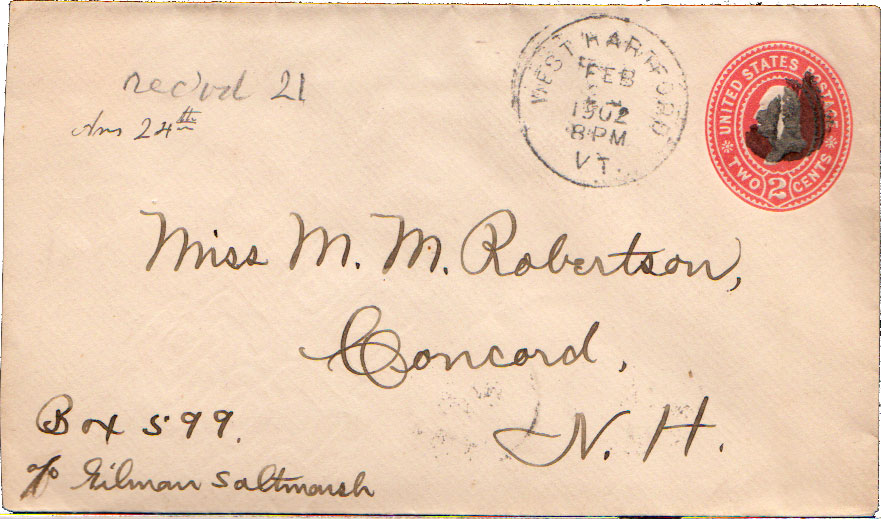 rec'vd 21
Ans 24th
WEST HARTFORD
FEB
1902
8 PM
VT.
UNITED STATES POSTAGE
TWO 2 CENTS
Miss M. M. Robertson,
Concord,
N. H.
Box 599.
c/o Gilman Saltmarsh